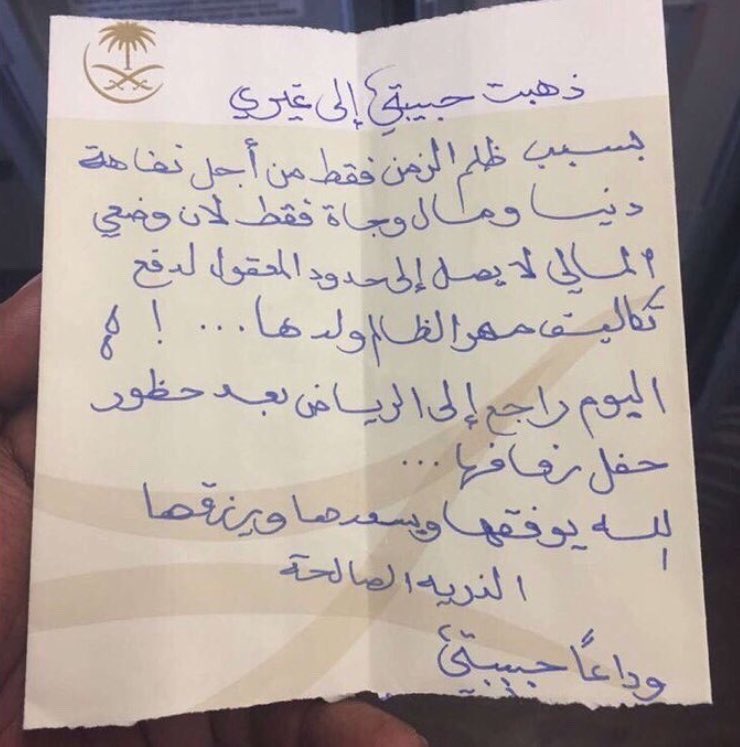 ذهبت حبيبتي إلى غيري
بسبب ظلم الزمن فقط من أجل تفاهة
دنيا ومال وجاة فقط لان وضعي
المالي لا يصل إلى حدود المعقول لدفع
تكاليف مهر الظالم ولدها... !
اليوم راجع إلى الرياض بعد حظور
حفل زفافها ...
الله يوفقها ويسعدها ويرزقها
الذريه الصالحة
وداعاً حبيبتي